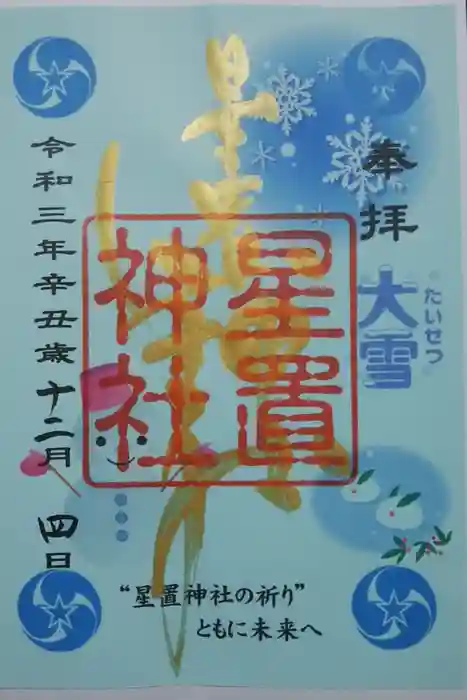 奉拝
たいせつ
大雪
星置神社
星置
神社
令和三年辛丑歳十二月 四日
“星置神社の祈り”
ともに未来へ